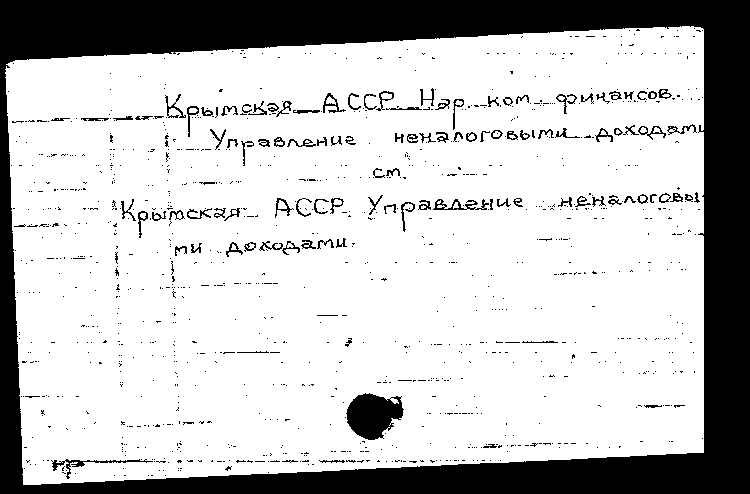 Крымская АССР. Нар. ком. финансов.
Управление неналоговыми доходами
см.
Крымская АССР. Управление неналоговы-
ми доходами.